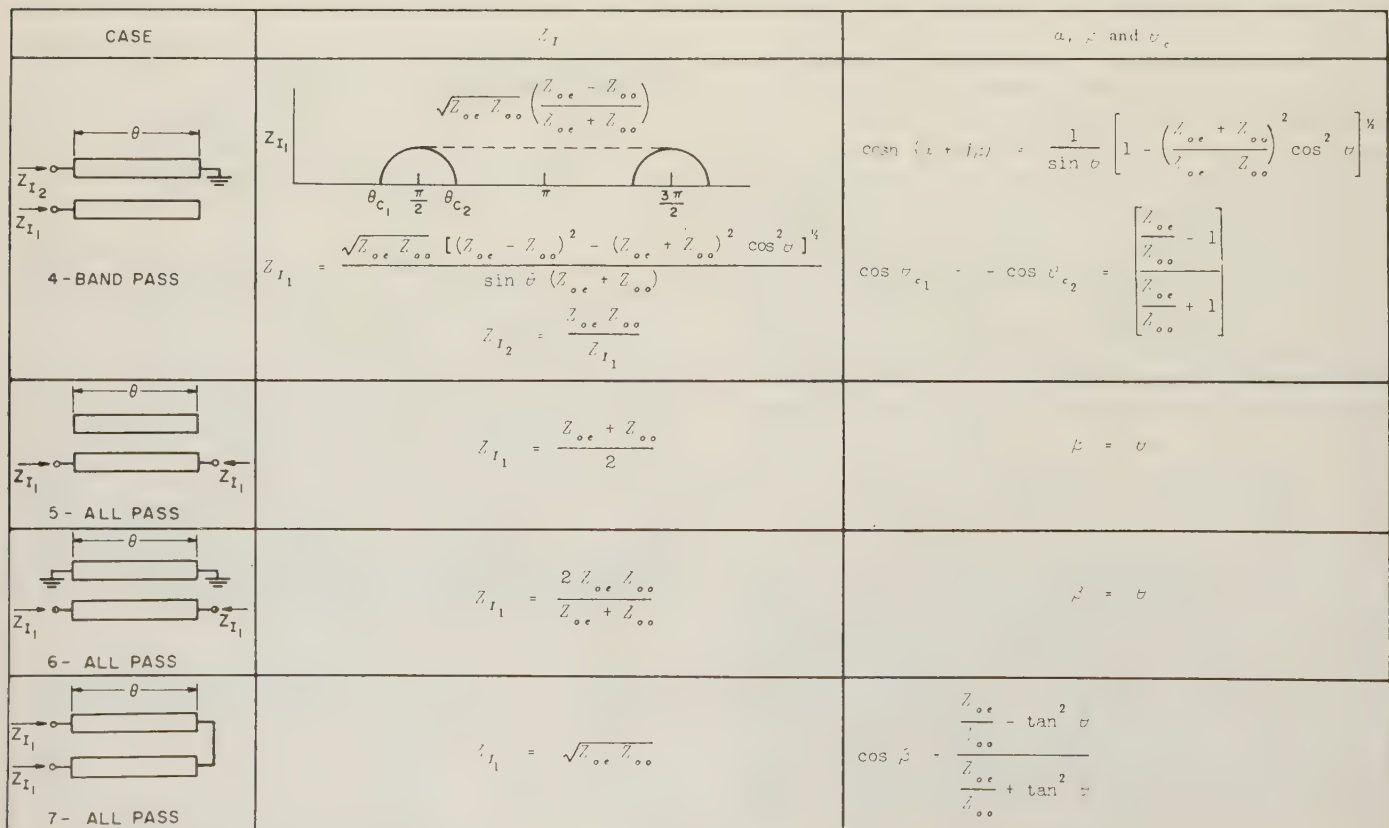 CASE
Z_I
α, β and θ_c
θ
Z_I2
Z_I1
4-BAND PASS
Z_I1
√(Z_oe Z_oo) ((Z_oe - Z_oo) / (Z_oe + Z_oo))
θ_C1 π/2 θ_C2 π 3π/2
Z_I1 = √(Z_oe Z_oo) [(Z_oe - Z_oo)^2 - (Z_oe + Z_oo)^2 cos^2 θ]^½ / (sin θ (Z_oe + Z_oo))
Z_I2 = Z_oe Z_oo / Z_I1
cosh (α + jβ) = 1 / sin θ [1 - ((Z_oe + Z_oo) / (Z_oe Z_oo))^2 cos^2 θ]^½
cos θ_c1 - - cos θ_c2 = [(Z_oe / Z_oo - 1) / (Z_oe / Z_oo + 1)]
θ
Z_I1
Z_I1
5-ALL PASS
Z_I1 = (Z_oe + Z_oo) / 2
β = θ
θ
Z_I1
Z_I1
6- ALL PASS
Z_I1 = 2 Z_oe Z_oo / (Z_oe + Z_oo)
β = θ
θ
Z_I1
Z_I1
7- ALL PASS
Z_I1 = √(Z_oe Z_oo)
cos β - (Z_oe / Z_oo - tan^2 θ) / (Z_oe / Z_oo + tan^2 θ)